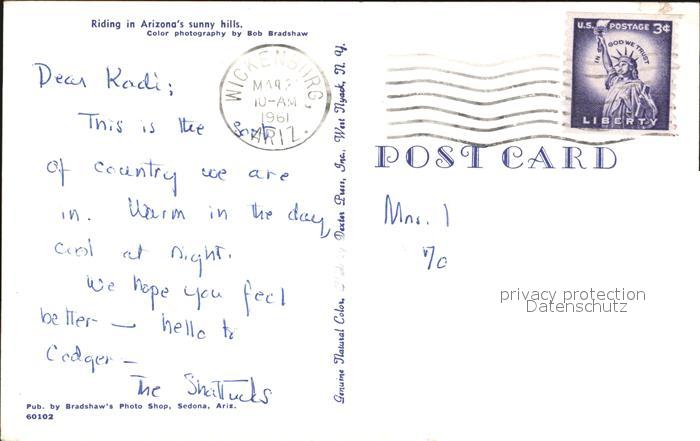 Riding in Arizona's sunny hills.
Color photography by Bob Bradshaw
Dear Kadi;
This is the sort
of country we are
in. Warm in the day,
cool at night.
We hope you feel
better — hello to
Codger —
The Shattucks
Pub. by Bradshaw's Photo Shop, Sedona, Ariz.
60102
WICKENBURG,
MAR
10-AM
1961
ARIZ.
Genuine Natural Color, Dexter Press, Inc., West Nyack, N. Y.
U.S. POSTAGE 3¢
IN GOD WE TRUST
LIBERTY
POST CARD
Mrs.
℅
privacy protection
Datenschutz